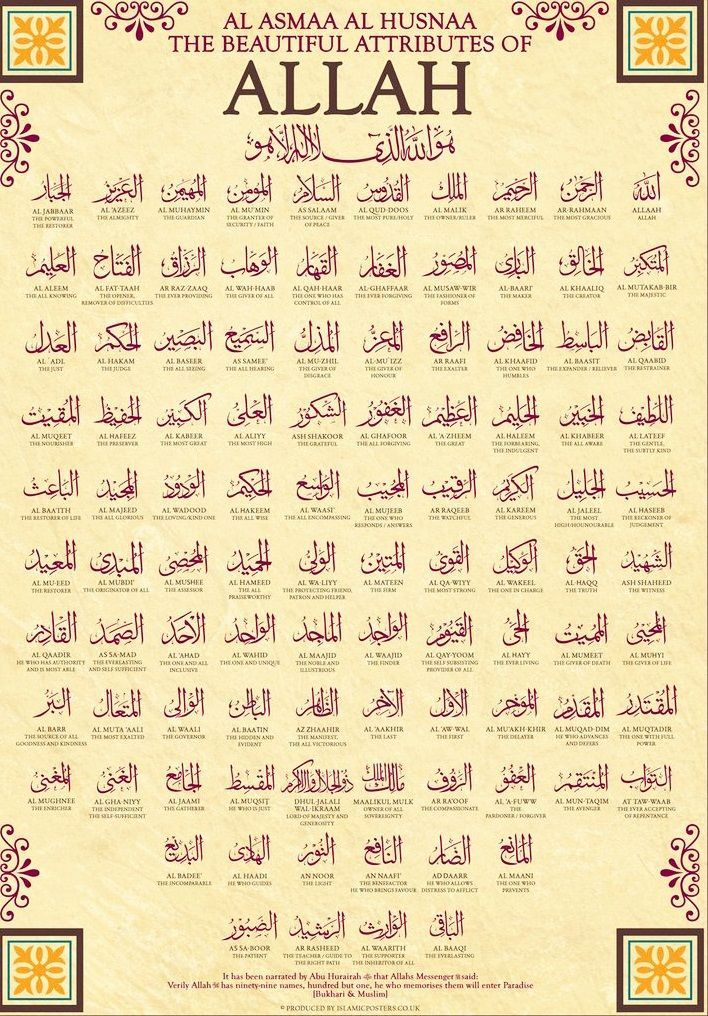 AL ASMAA AL HUSNAA
THE BEAUTIFUL ATTRIBUTES OF
ALLAH
هو الله الذي لا إله إلا هو
الله
ALLAAH
ALLAH
الرحمن
AR-RAHMAAN
THE MOST GRACIOUS
الرحيم
AR RAHEEM
THE MOST MERCIFUL
الملك
AL MALIK
THE OWNER/RULER
القدوس
AL QUD-DOOS
THE MOST PURE/HOLY
السلام
AS SALAAM
THE SOURCE / GIVER
OF PEACE
المومن
AL MU'MIN
THE GRANTER OF
SECURITY / FAITH
المهيمن
AL MUHAYMIN
THE GUARDIAN
العزيز
AL 'AZEEZ
THE ALMIGHTY
الجبار
AL JABBAAR
THE POWERFUL
THE RESTORER
المتكبر
AL MUTAKAB-BIR
THE MAJESTIC
الخالق
AL KHAALIQ
THE CREATOR
البارئ
AL-BAARI'
THE MAKER
المصور
AL MUSAW-WIR
THE FASHIONER OF
FORMS
الغفار
AL-GHAFFAAR
THE EVER FORGIVING
القهار
AL QAH-HAAR
THE ONE WHO HAS
CONTROL OF ALL
الوهاب
AL WAH-HAAB
THE GIVER OF ALL
الرزاق
AR RAZ-ZAAQ
THE EVER PROVIDING
الفتاح
AL FAT-TAAH
THE OPENER,
REMOVER OF DIFFICULTIES
العليم
AL ALEEM
THE ALL KNOWING
القابض
AL QAABID
THE RESTRAINER
الباسط
AL BAASIT
THE EXPANDER / RELIEVER
الخافض
AL KHAAFID
THE ONE WHO
HUMBLES
الرافع
AR RAAFI
THE EXALTER
المعز
AL-MU'IZZ
THE GIVER OF
HONOUR
المذل
AL MU-ZHIL
THE GIVER OF
DISGRACE
السميع
AS SAMEE'
THE ALL HEARING
البصير
AL BASEER
THE ALL SEEING
الحكم
AL HAKAM
THE JUDGE
العدل
AL 'ADL
THE JUST
اللطيف
AL LATEEF
THE GENTLE,
THE SUBTLY KIND
الخبير
AL KHABEER
THE ALL AWARE
الحليم
AL HALEEM
THE FORBEARING,
THE INDULGENT
العظيم
AL 'A'ZHEEM
THE GREAT
الغفور
AL GHAFOOR
THE ALL FORGIVING
الشكور
ASH SHAKOOR
THE GRATEFUL
العلي
AL ALIYY
THE MOST HIGH
الكبير
AL KABEER
THE MOST GREAT
الحفيظ
AL HAFEEZ
THE PRESERVER
المقيت
AL MUQEET
THE NOURISHER
الحسيب
AL HASEEB
THE RECKONER OF
JUDGEMENT
الجليل
AL JALEEL
THE MOST
HIGH/HOUNOURABLE
الكريم
AL KAREEM
THE GENEROUS
الرقيب
AR RAQEEB
THE WATCHFUL
المجيب
AL MUJEEB
THE ONE WHO
RESPONDS / ANSWERS
الواسع
AL WAASI'
THE ALL ENCOMPASSING
الحكيم
AL HAKEEM
THE ALL WISE
الودود
AL WADOOD
THE LOVING/KIND ONE
المجيد
AL MAJEED
THE ALL GLORIOUS
الباعث
AL BAA'ITH
THE RESTORER OF LIFE
الشهيد
ASH SHAHEED
THE WITNESS
الحق
AL-HAQQ
THE TRUTH
الوكيل
AL WAKEEL
THE ONE IN CHARGE
القوى
AL QA-WIYY
THE MOST STRONG
المتين
AL MATEEN
THE FIRM
الولى
AL WA-LIYY
THE PROTECTING FRIEND,
PATRON AND HELPER
الحميد
AL HAMEED
THE ALL
PRAISEWORTHY
المحصى
AL MUSHEE
THE ASSESSOR
المبدئ
AL MUBDI'
THE ORIGINATOR OF ALL
المعيد
AL MU-EED
THE RESTORER
المحيى
AL MUHYI
THE GIVER OF LIFE
المميت
AL MUMEET
THE GIVER OF DEATH
الحى
AL HAYY
THE EVER LIVING
القيوم
AL QAY-YOOM
THE SELF SUBSISTING
PROVIDER OF ALL
الواجد
AL WAAJID
THE FINDER
الماجد
AL MAAJID
THE NOBLE AND
ILLUSTRIOUS
الواحد
AL WAHID
THE ONE AND UNIQUE
الاحد
AL 'AHAD
THE ONE AND ALL
INCLUSIVE
الصمد
AS SA-MAD
THE EVERLASTING
AND SELF SUFFICIENT
القادر
AL QAADIR
HE WHO HAS AUTHORITY
AND IS MOST ABLE
المقتدر
AL MUQTADIR
THE ONE WITH FULL
POWER
المقدم
AL MUQAD-DIM
HE WHO ADVANCES
AND DEFERS
الموخر
AL MU'AKH-KHIR
THE DELAYER
الاول
AL 'AW-WAL
THE FIRST
الاخر
AL 'AAKHIR
THE LAST
الظاهر
AZ ZHAAHIR
THE MANIFEST,
THE ALL VICTORIOUS
الباطن
AL BAATIN
THE HIDDEN AND
EVIDENT
الوالى
AL WAALI
THE GOVERNOR
المتعال
AL MUTA 'AALI
THE MOST EXALTED
البر
AL BARR
THE SOURCE OF ALL
GOODNESS AND KINDNESS
التواب
AT TAW-WAAB
THE EVER ACCEPTING
OF REPENTANCE
المنتقم
AL MUN-TAQIM
THE AVENGER
العفو
AL 'A-FUWW
THE
PARDONER / FORGIVER
الرؤوف
AR RA'OOF
THE COMPASSIONATE
مالك الملك
MAALIKUL MULK
OWNER OF ALL
SOVEREIGNTY
ذو الجلال والاكرام
DHUL-JALALI
WAL-IKRAAM
LORD OF MAJESTY AND
GENEROSITY
المقسط
AL MUQSIT
HE WHO IS JUST
الجامع
AL JAAMI
THE GATHERER
الغنى
AL GHA-NIYY
THE INDEPENDENT
THE SELF-SUFFICIENT
المغنى
AL MUGHNEE
THE ENRICHER
المانع
AL MAANI
THE ONE WHO
PREVENTS
الضار
AD DAARR
HE WHO ALLOWS
DISTRESS TO AFFLICT
النافع
AN NAAFI'
THE BENEFACTOR
HE WHO BRINGS FAVOUR
النور
AN NOOR
THE LIGHT
الهادى
AL HAADI
HE WHO GUIDES
البديع
AL BADEE'
THE INCOMPARABLE
الباقى
AL BAAQI
THE EVERLASTING
الوارث
AL WAARITH
THE SUPPORTER
THE INHERITOR OF ALL
الرشيد
AR RASHEED
THE TEACHER / GUIDE TO
THE RIGHT PATH
الصبور
AS SA-BOOR
THE PATIENT
It has been narrated by Abu Hurairah that Allahs Messenger ﷺ said:
Verily Allah has ninety-nine names, hundred but one, he who memorises them will enter Paradise
[Bukhari & Muslim]
© PRODUCED BY ISLAMICPOSTERS.CO.UK